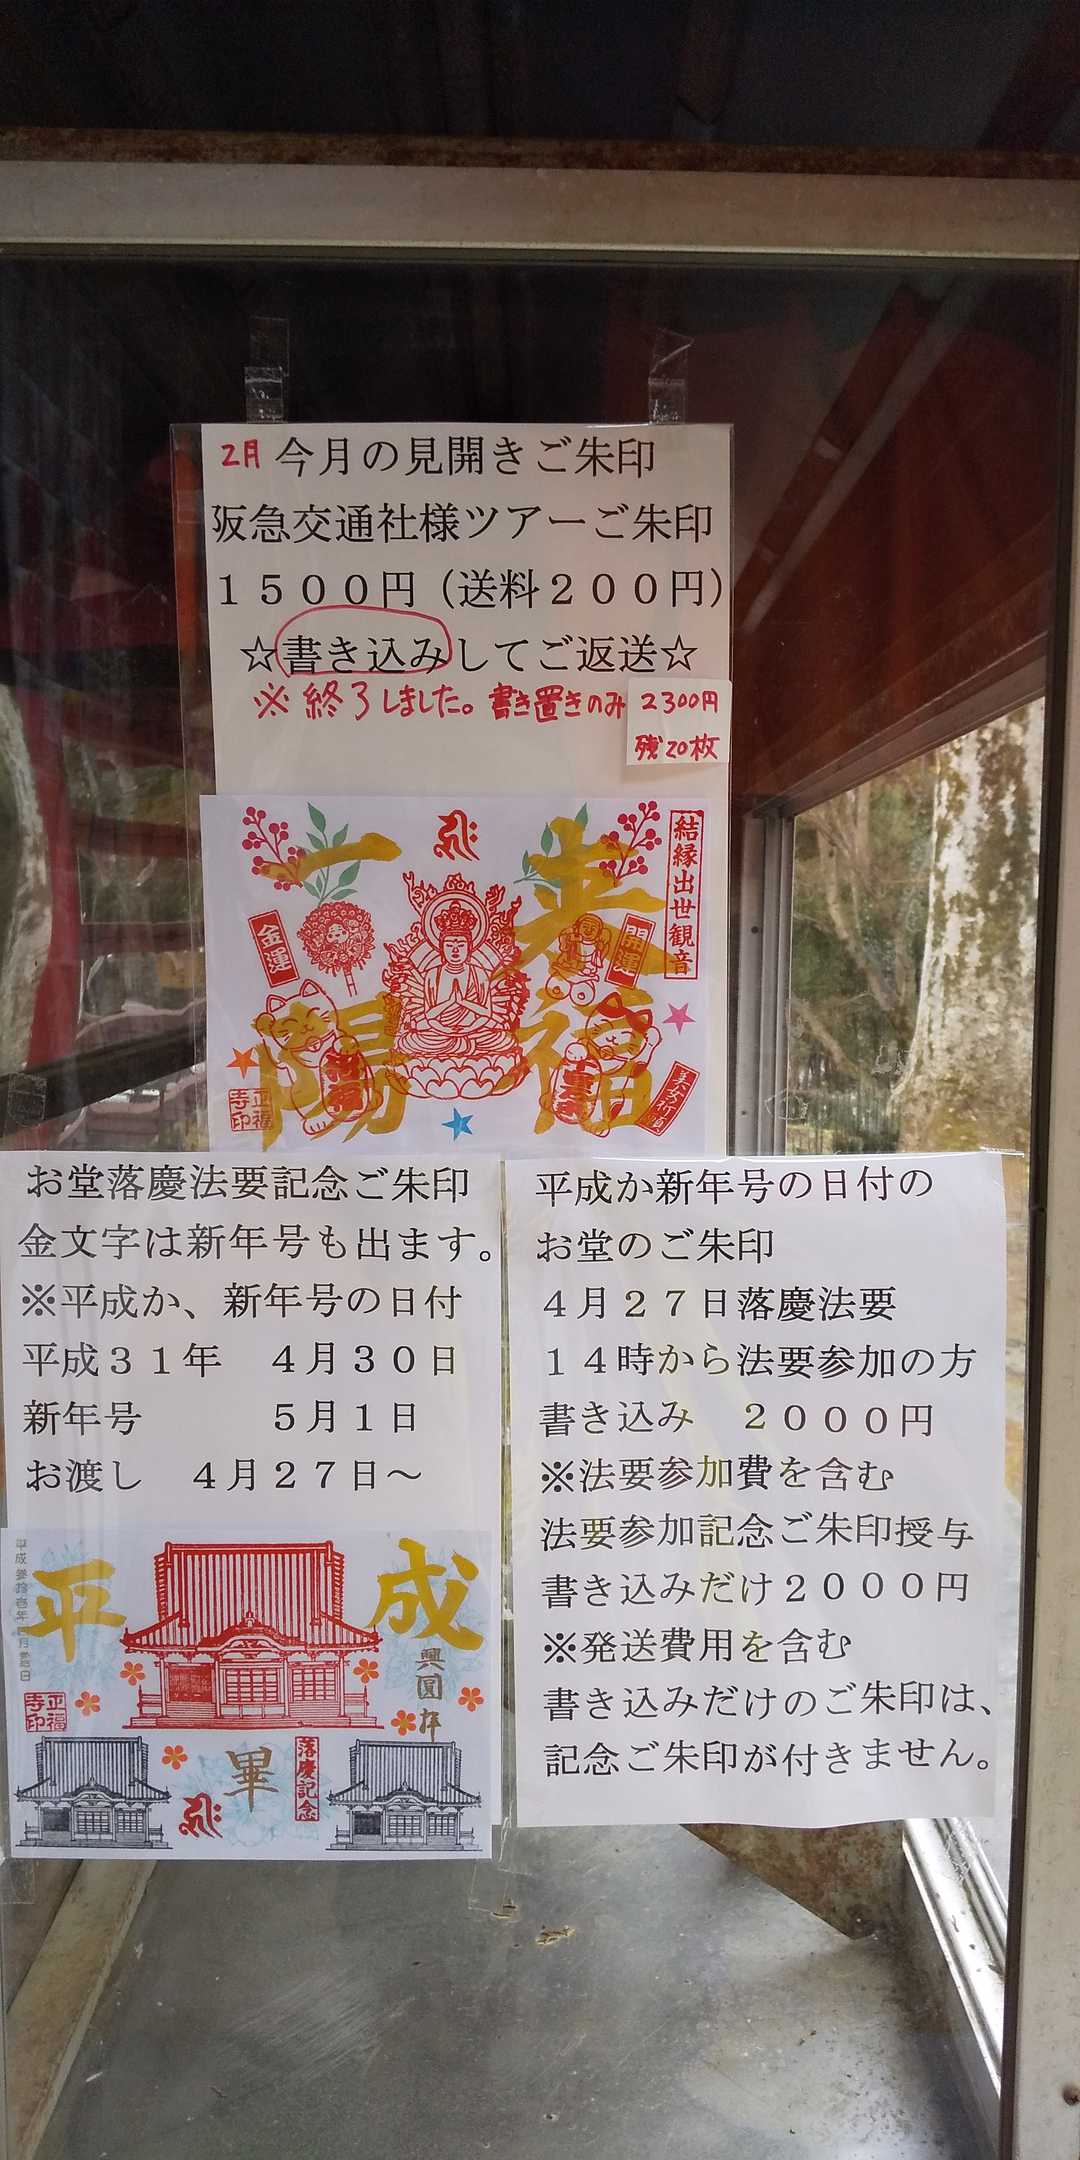 2月 今月の見開きご朱印
阪急交通社様ツアーご朱印
１５００円（送料２００円）
☆書き込みしてご返送☆
※終了しました。書き置きのみ 2300円
残20枚
一陽来福
結縁出世観音
金運
開運
正福寺印
お堂落慶法要記念ご朱印
金文字は新年号も出ます。
※平成か、新年号の日付
平成３１年　４月３０日
新年号　５月１日
お渡し　４月２７日～
平成
興圓拝
正福寺印
畢
落慶記念
平成か新年号の日付の
お堂のご朱印
４月２７日落慶法要
１４時から法要参加の方
書き込み　２０００円
※法要参加費を含む
法要参加記念ご朱印授与
書き込みだけ２０００円
※発送費用を含む
書き込みだけのご朱印は、
記念ご朱印が付きません。